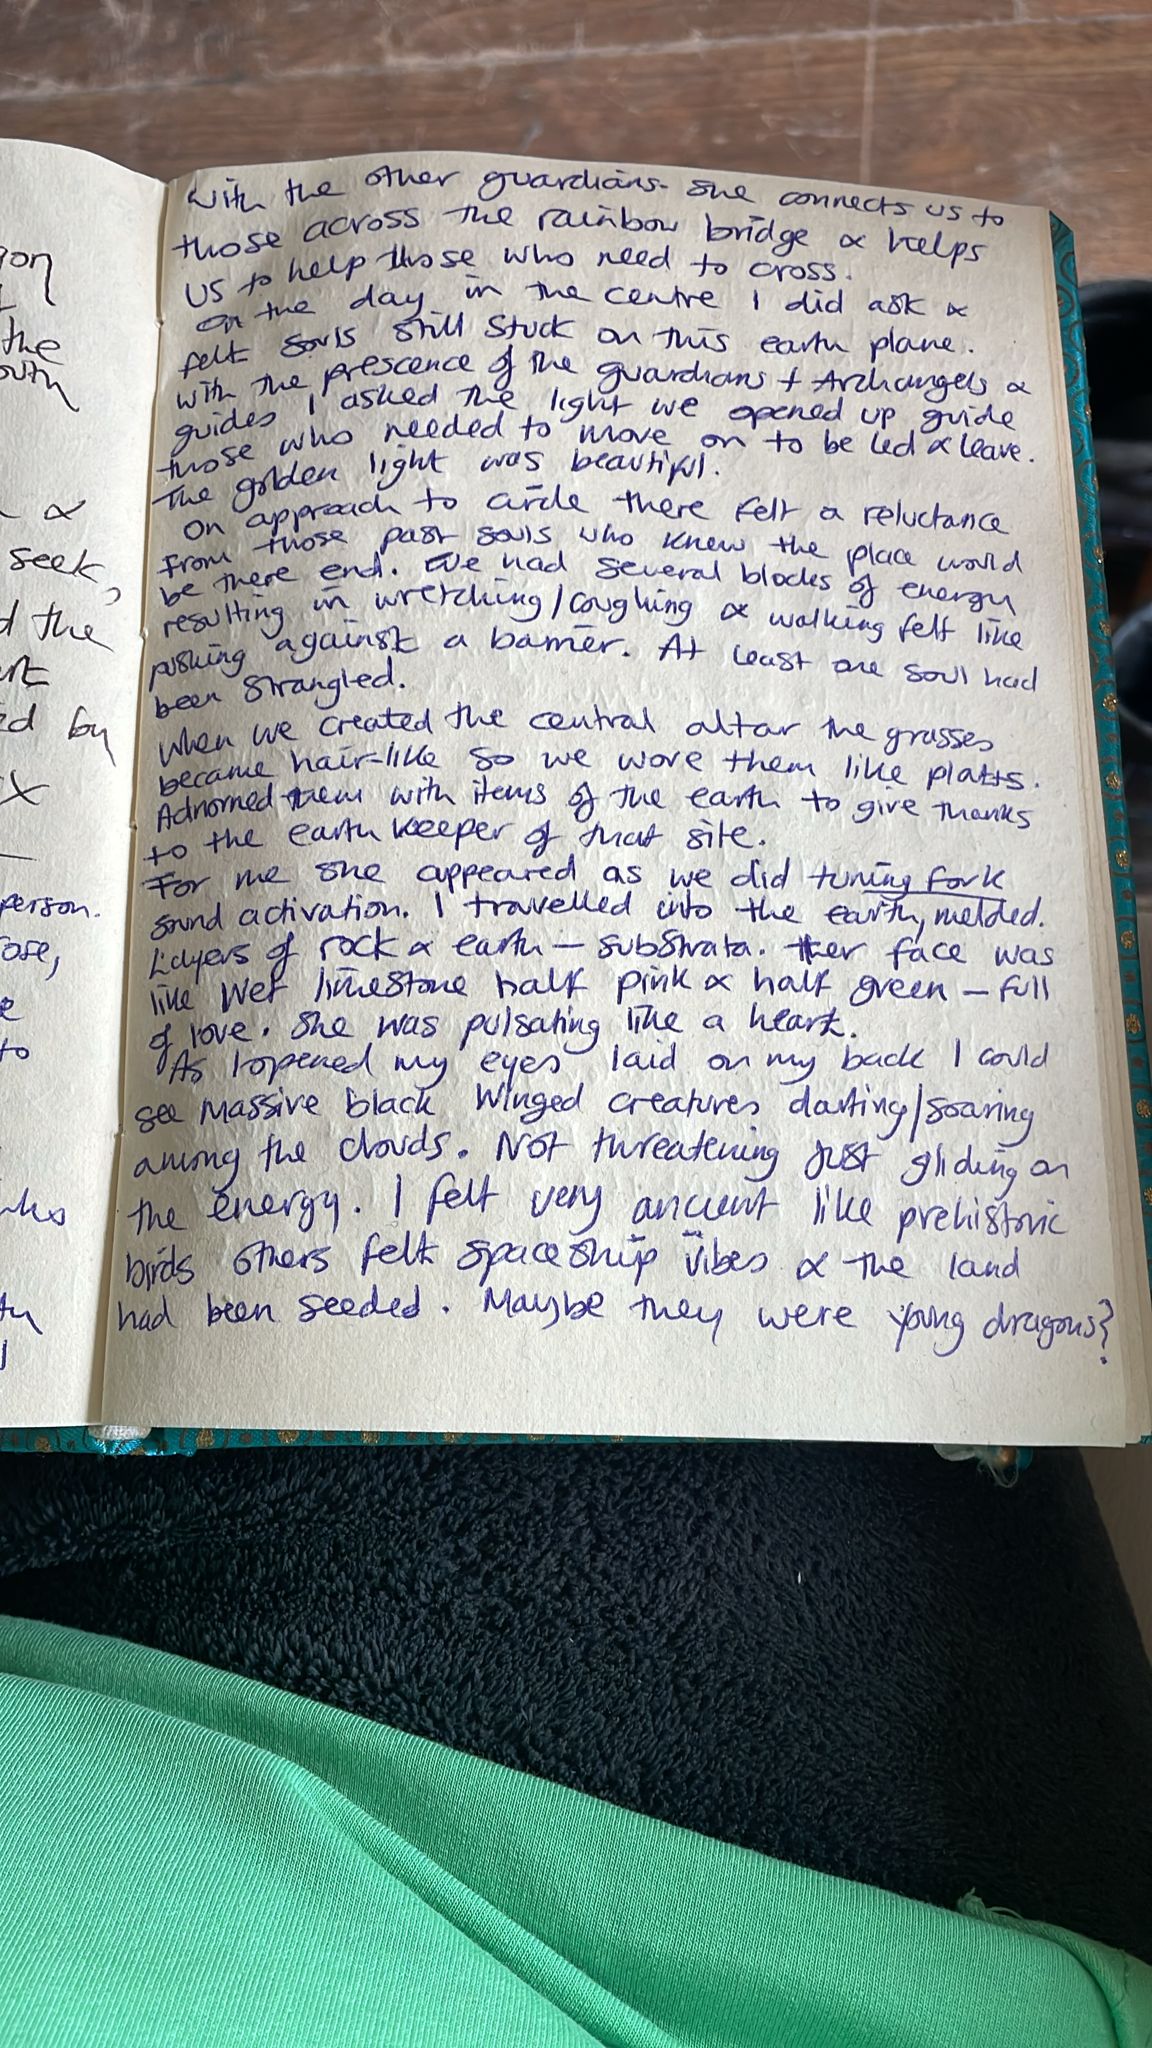 gon
the
outh
α
seek,
d the
art
ed by
x
person.
ose,
e
to
who
with the other guardians. She connects us to
those across the rainbow bridge α helps
us to help those who need to cross.
On the day in the centre I did ask α
felt souls still stuck on this earth plane.
With the prescence of the guardians + Archangels α
guides I asked the light we opened up guide
those who needed to move on to be led α leave.
The golden light was beautiful.
On approach to circle there felt a reluctance
from those past souls who knew the place would
be there end. We had several blocks of energy
resulting in wretching/coughing α walking felt like
pushing against a barrier. At least one soul had
been strangled.
When we created the central altar the grasses
became hair-like so we wove them like plaits.
Adnorned them with items of the earth to give thanks
to the earth keeper of that site.
For me she appeared as we did tuning fork
sound activation. I travelled into the earth, melded.
Layers of rock α earth — substrata. Her face was
like wet limestone half pink α half green — full
of love. She was pulsating like a heart.
As I opened my eyes laid on my back I could
see massive black winged creatures darting/soaring
among the clouds. Not threatening just gliding on
the energy. I felt very ancient like prehistoric
birds others felt spaceship vibes α the land
had been seeded. Maybe they were young dragons?